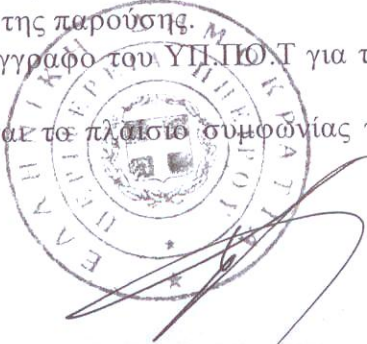 της παρούσης.
γγραφο του ΥΠ.ΠΟ.Τ για τ
αι το πλαίσιο συμφωνίας
ΕΛΛΗΝΙΚΗ ΔΗΜΟΚΡΑΤΙΑ
ΠΕΡΙΦΕΡΕΙΑ ΗΠΕΙΡΟΥ